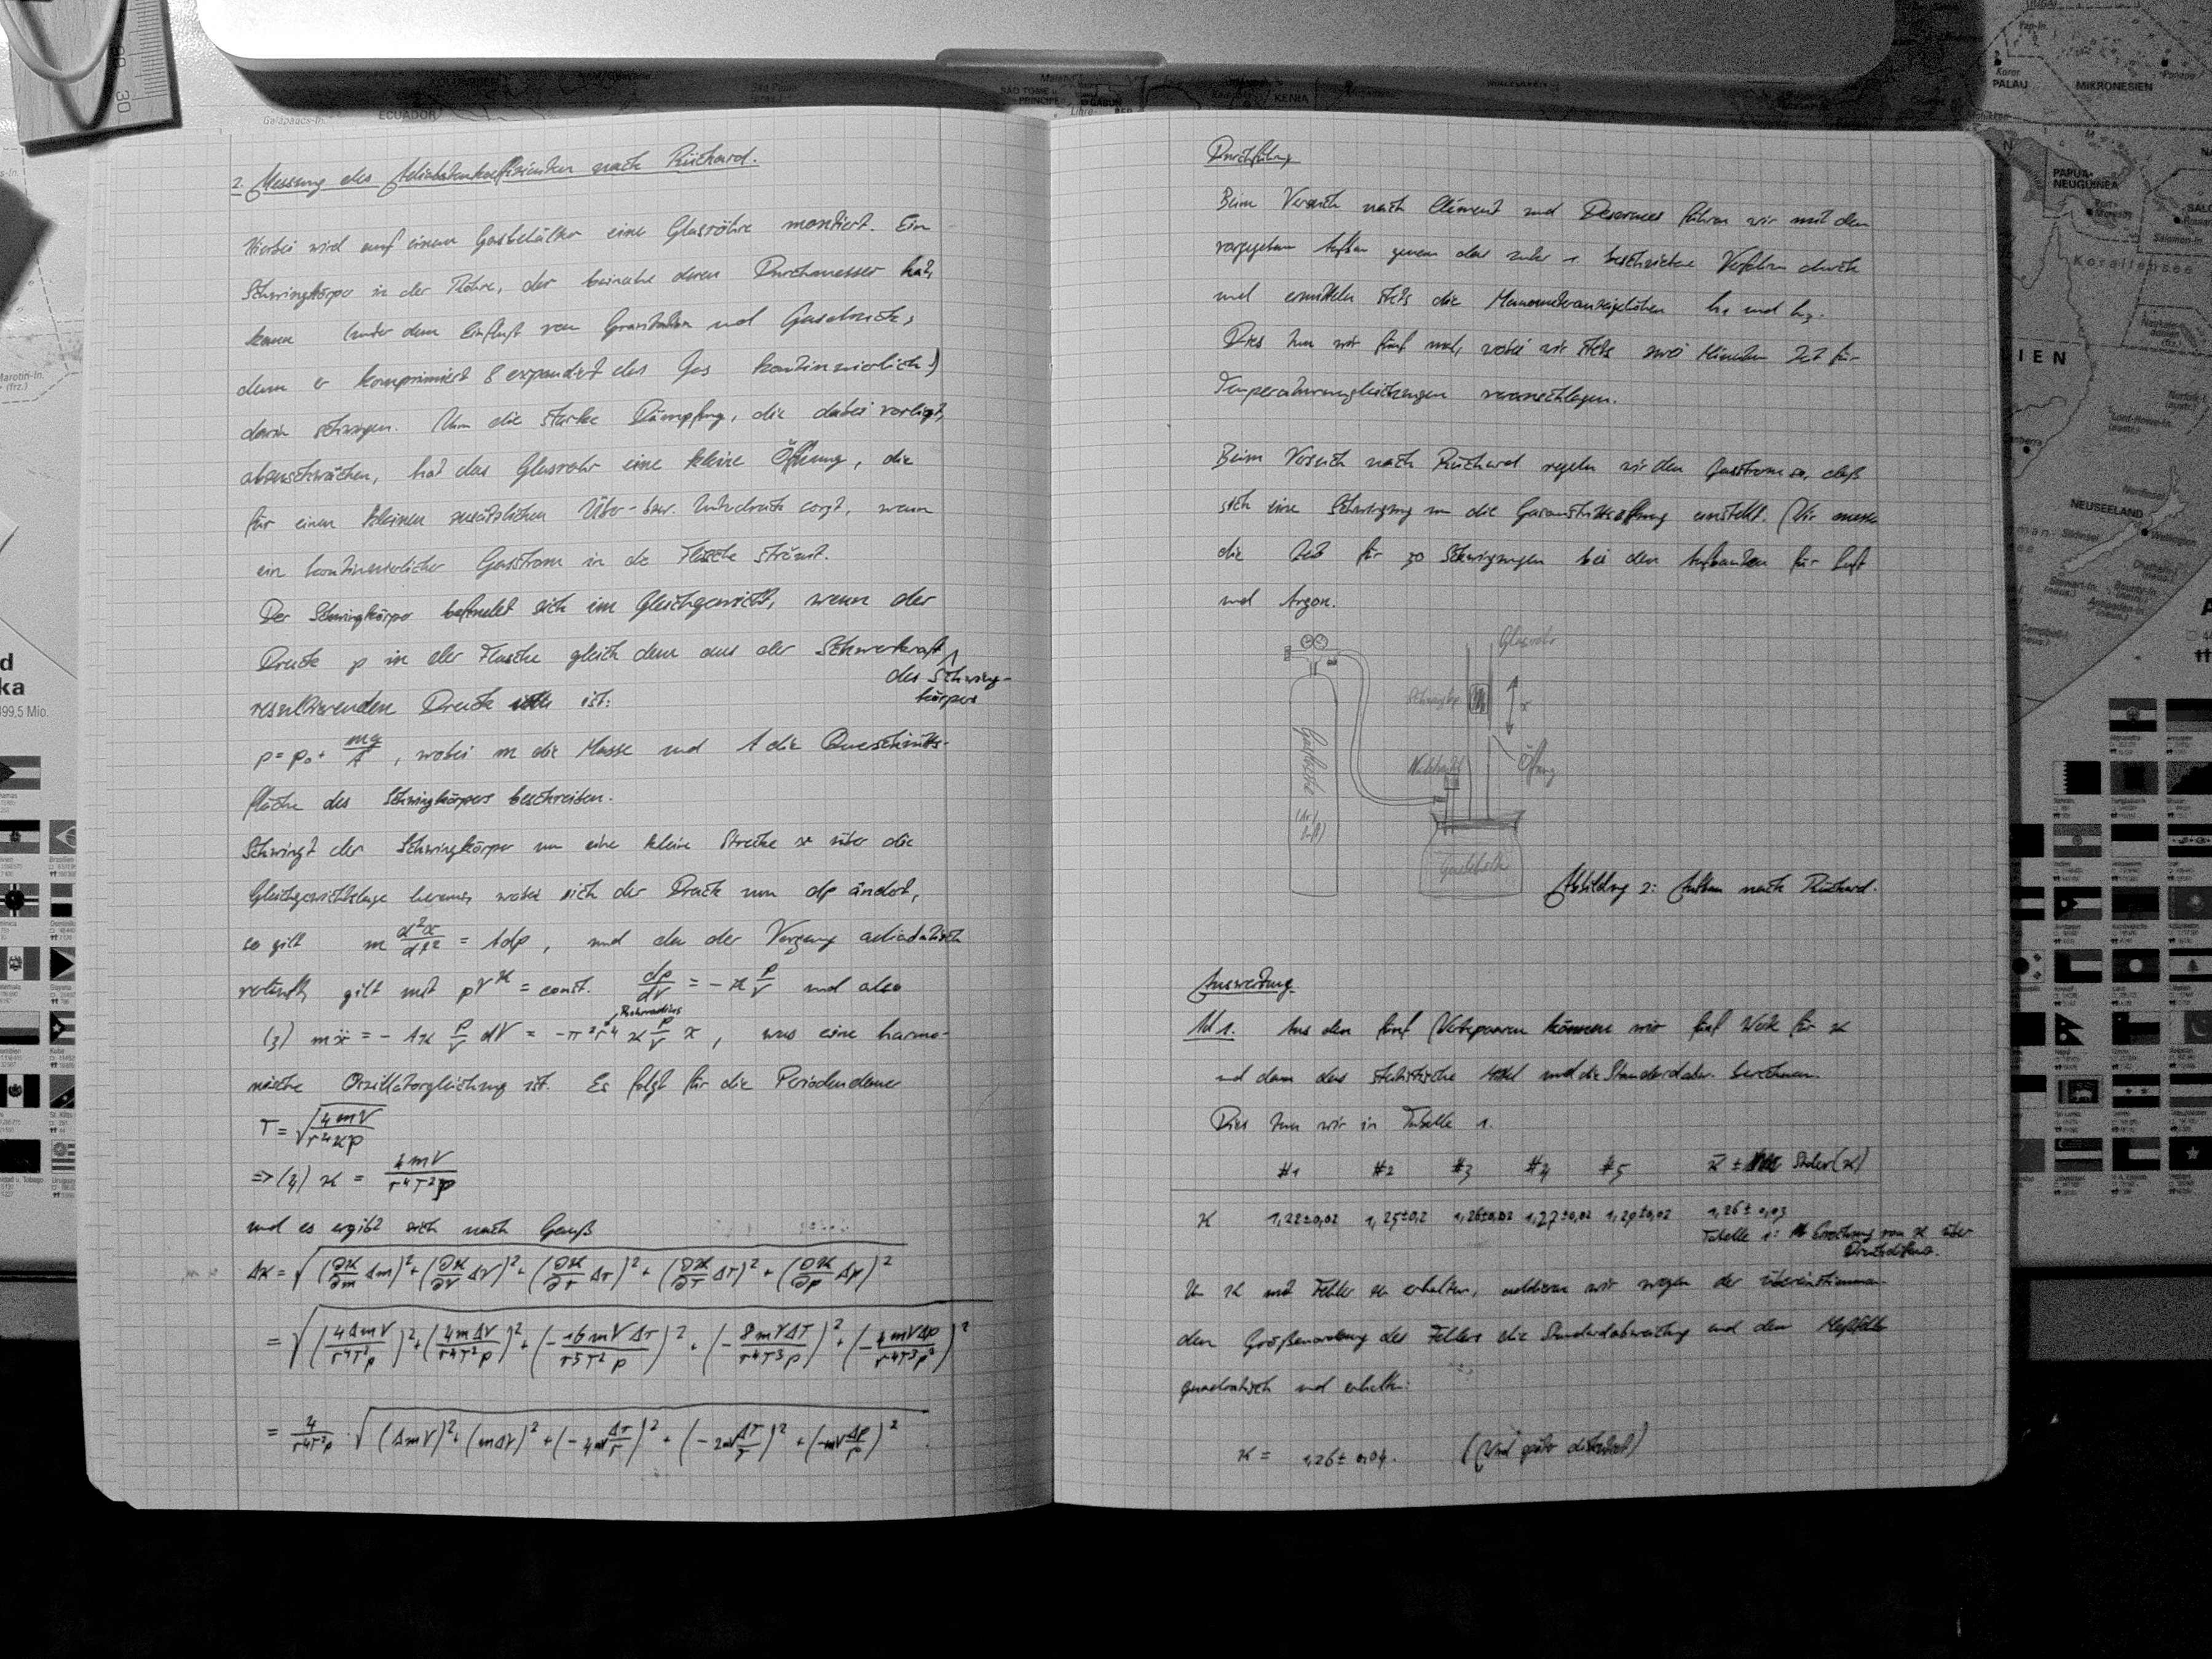 2. Messung des Adiabatenkoeffizienten nach Rüchard.
Hierbei wird auf einen Gasbehälter eine Glasröhre montiert. Ein
Schwingkörper in der Röhre, der beinahe deren Durchmesser hat,
kann (unter dem Einfluß von Gravitation und Gasdruck,
denn er komprimiert & expandiert das Gas kontinuierlich)
darin schwingen. Um die starke Dämpfung, die dabei vorliegt,
abzuschwächen, hat das Glasrohr eine kleine Öffnung, die
für einen kleinen zusätzlichen Über- bzw. Unterdruck sorgt, wenn
ein kontinuierlicher Gasstrom in die Flasche strömt.
Der Schwingkörper befindet sich im Gleichgewicht, wenn der
Druck p in der Flasche gleich dem aus der Schwerkraft
des Schwing-
körpers
resultierenden Druck ist:
p = p₀ + mg/A, wobei m die Masse und A die Querschnitts-
fläche des Schwingkörpers beschreiben.
Schwingt der Schwingkörper um eine kleine Strecke x über die
Gleichgewichtslage heraus, wobei sich der Druck um dp ändert,
so gilt m d²x/dt² = A dp, und da der Vorgang adiabatisch
verläuft, gilt mit pV^ϰ = const. dp/dV = -ϰ p/V und also
Rohrradius
(3) mẍ = -Aϰ p/V dV = -π²r⁴ ϰ p/V x, was eine harmo-
nische Oszillatorgleichung ist. Es folgt für die Periodendauer
T = √(4mV/r⁴ϰp)
=> (4) ϰ = 4mV/r⁴T²p
und es ergibt sich nach Gauß
Δϰ = √((∂ϰ/∂m Δm)² + (∂ϰ/∂V ΔV)² + (∂ϰ/∂r Δr)² + (∂ϰ/∂T ΔT)² + (∂ϰ/∂p Δp)²)
= √((4ΔmV/r⁴T²p)² + (4mΔV/r⁴T²p)² + (-16mVΔr/r⁵T²p)² + (-8mVΔT/r⁴T³p)² + (-4mVΔp/r⁴T³p²)²)
= 4/r⁴T²p · √((ΔmV)² + (mΔV)² + (-4mV Δr/r)² + (-2mV ΔT/T)² + (-mV Δp/p)²)
Durchführung
Beim Versuch nach Clément und Desormes führen wir mit dem
vorgegebenen Aufbau genau das unter 1 beschriebene Verfahren durch
und ermitteln stets die Manometeranzeigehöhen h₁ und h₃.
Dies tun wir fünf mal, wobei wir stets zwei Minuten Zeit für
Temperaturangleichungen veranschlagen.
Beim Versuch nach Rüchard regeln wir den Gasstrom so, daß
sich eine Schwingung um die Gasaustrittsöffnung einstellt. Wir messen
die Zeit für 50 Schwingungen bei den Aufbauten für Luft
und Argon.
Glasrohr
Schwingkp
x
Gasflasche
(Ar/
Luft)
Öffnung
Gasbehält.
Abbildung 2: Aufbau nach Rüchard.
Auswertung
Ad 1. Aus den fünf Wertepaaren können wir fünf Werte für ϰ
und dann das statistische Mittel und die Standardabw. berechnen.
Dies tun wir in Tabelle 1.
#1 #2 #3 #4 #5 ϰ̄ ± Stdev(ϰ)
ϰ 1,22±0,02 1,25±0,2 1,26±0,02 1,27±0,02 1,29±0,02 1,26±0,03
Tabelle 1: Errechnung von ϰ über
Druckdifferenz.
Um ϰ mit Fehler zu erhalten, addieren wir wegen der übereinstimmen-
den Größenordnung des Fehlers die Standardabweichung und den Meßfehler
quadratisch und erhalten:
ϰ = 1,26 ± 0,04. (Wird später diskutiert)
ECUADOR
Galápagos-In.
SÃO TOMÉ u.
PRÍNCIPE
GABUN
KENIA
PALAU
MIKRONESIEN
PAPUA-
NEUGUINEA
Korallensee
IEN
NEUSEELAND
Wellington
Salomon-In.
30
399,5 Mio.